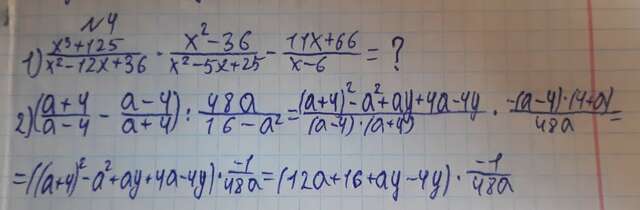 №4
1) (x³+125)/(x²-12x+36) · (x²-36)/(x²-5x+25) - (11x+66)/(x-6) = ?
2) ((a+4)/(a-4) - (a-4)/(a+4)) : 48a/(16-a²) = ((a+4)²-a²+ay+4a-4y)/((a-4)·(a+4)) · (-(a-4)·(4+a))/48a =
= ((a+4)²-a²+ay+4a-4y) · -1/48a = (12a+16+ay-4y) · -1/48a